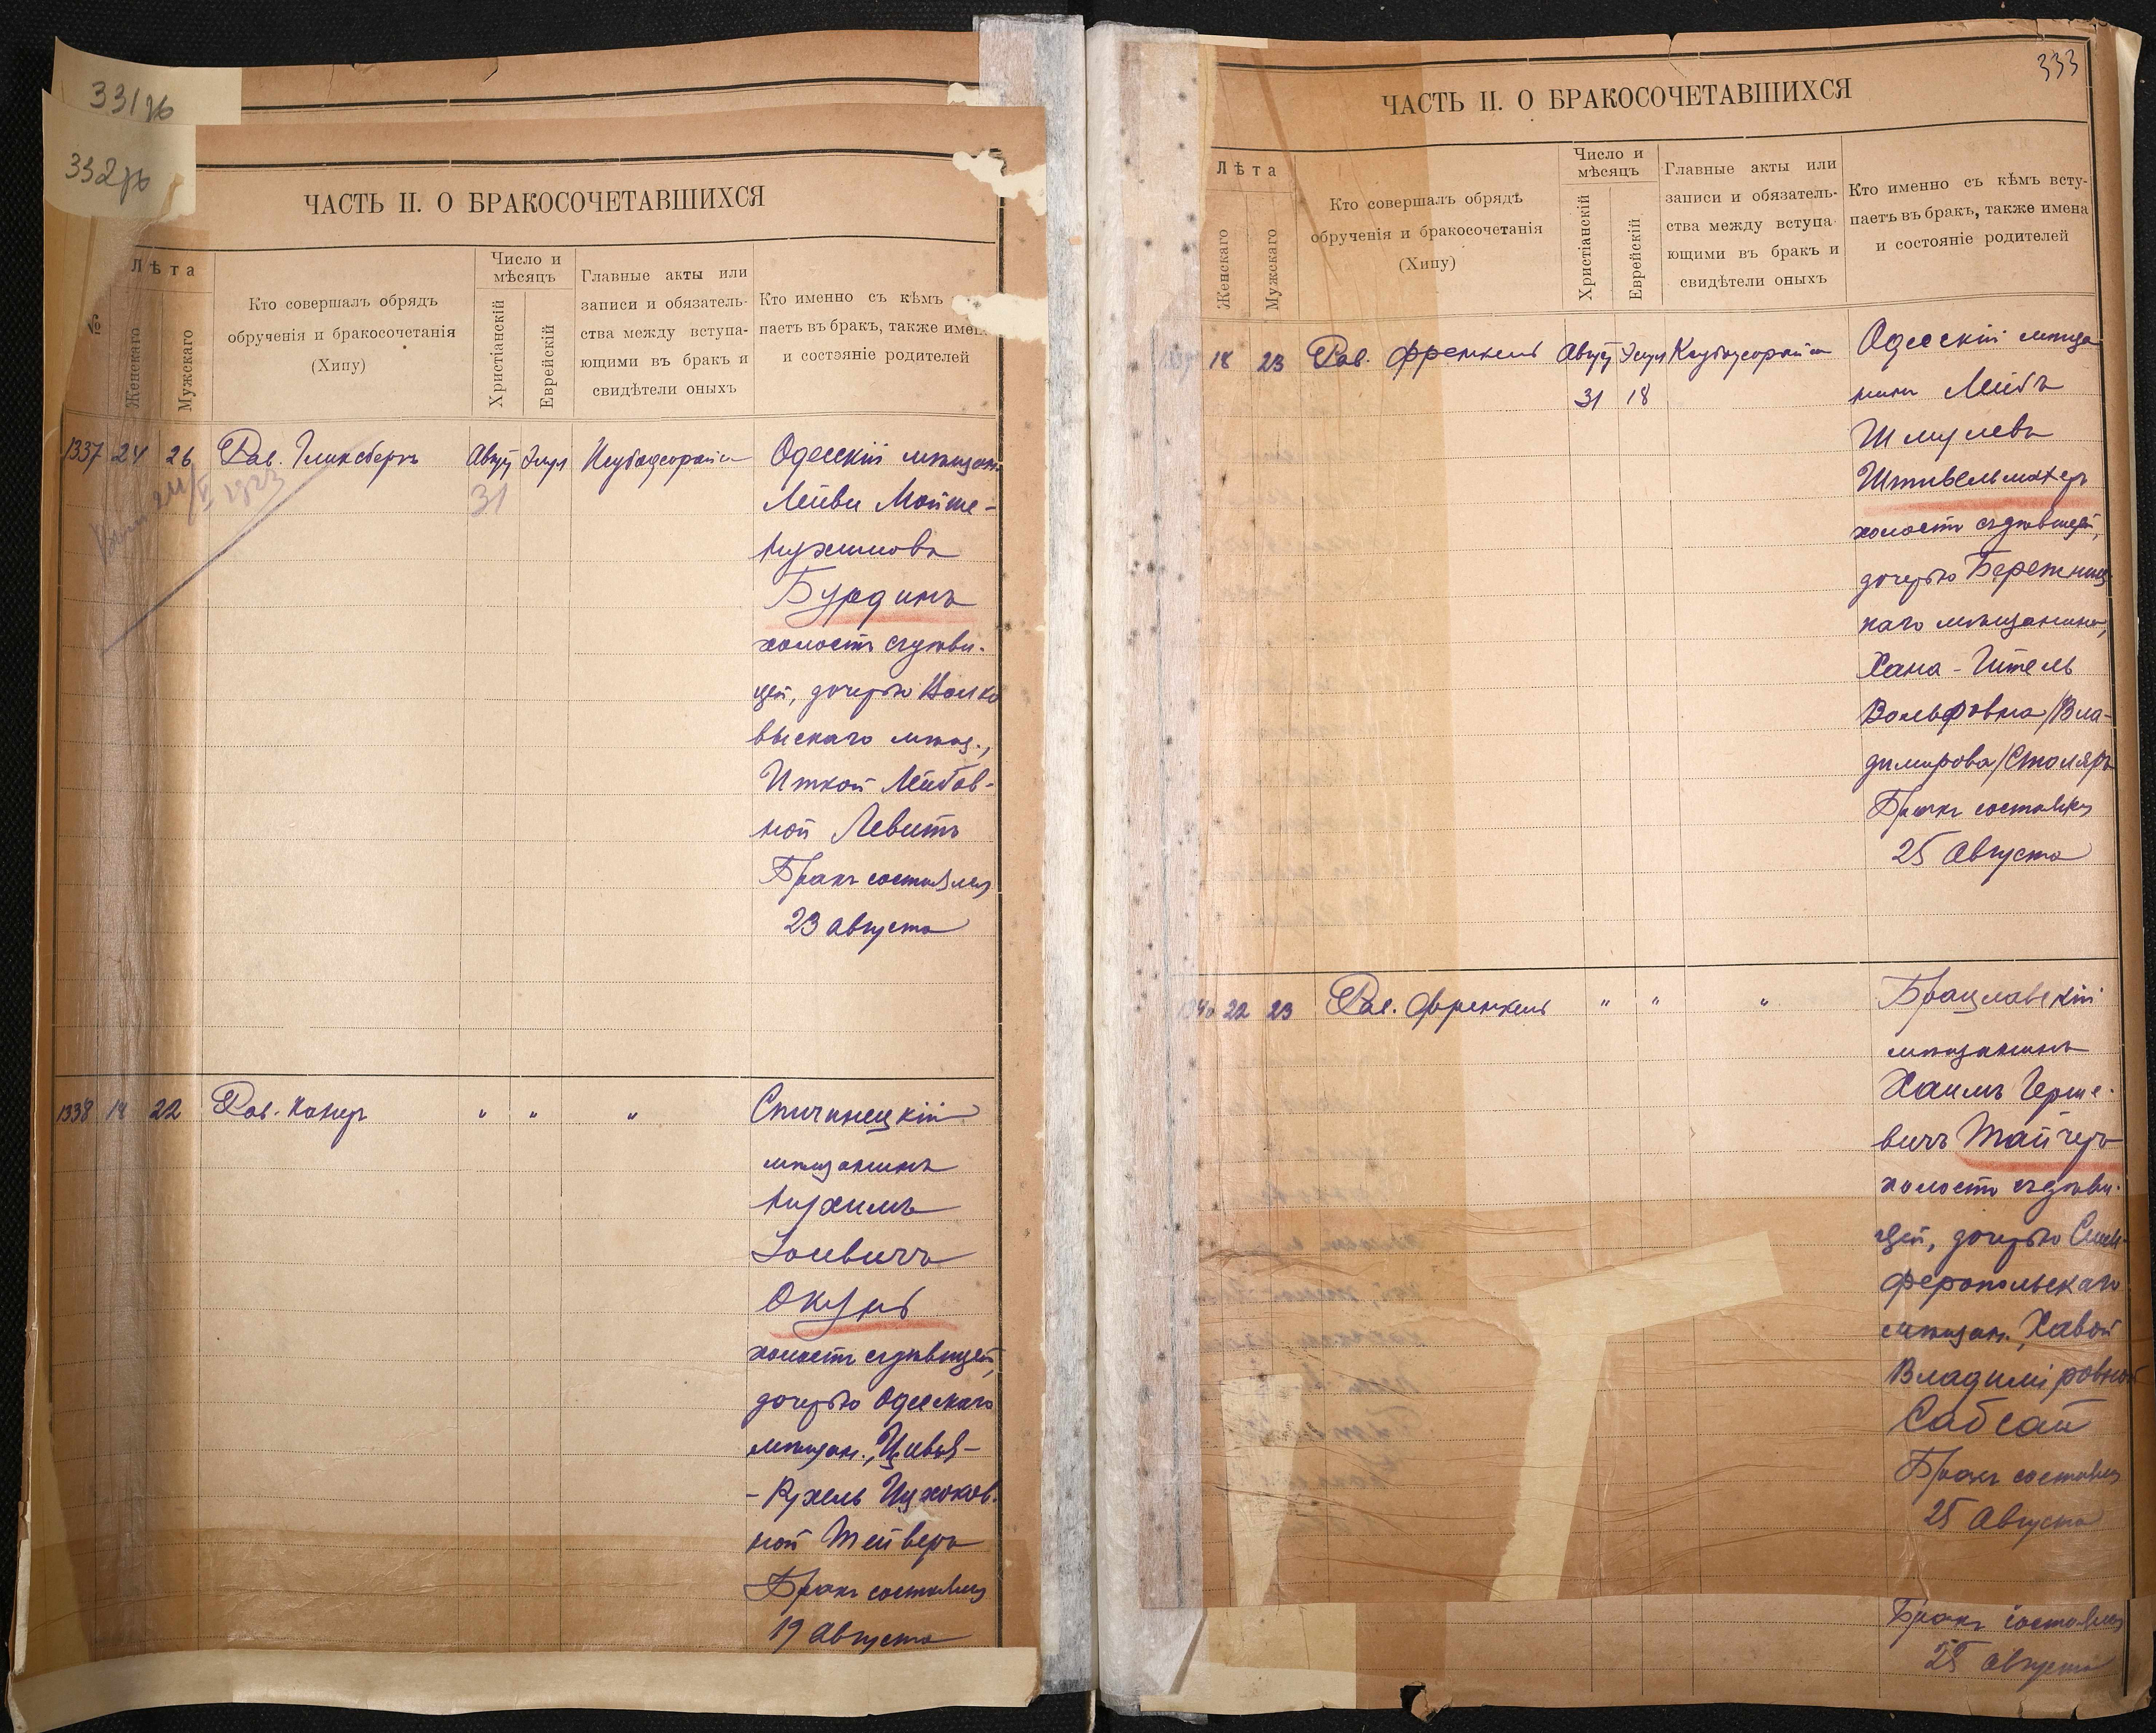 331 об
332 об
ЧАСТЬ II. О БРАКОСОЧЕТАВШИХСЯ
№
Лѣта
Женскаго
Мужскаго
Кто совершалъ обрядъ
обрученія и бракосочетанія
(Хипу)
Число и
мѣсяцъ
Христіанскій
Еврейскій
Главные акты или
записи и обязатель-
ства между вступа-
ющими въ бракъ и
свидѣтели оныхъ
Кто именно съ кѣмъ
паетъ въ бракъ, также имена
и состэяніе родителей
1337 24 26 Рав. Гликсбергъ Авгус Элул
31
1923
Одесскій мѣщан.
Лейви Мойше-
Нухимовъ
Бурдинъ
холостъ съ дѣви-
цей, дочерью Волко
выскаго мѣщ.,
Иткой Лейбов-
ной Левитъ
Бракъ состоялся
23 Августа
1338 18 22 Рав. Канеръ " " "
Спичинецкій
мѣщанинъ
Нухимъ
Іоевичъ
Окунь
холостъ съ дѣвицей,
дочерью Одесскаго
мѣщан., Цивья-
-Рухель Ицхоков.
ной Тейверъ
Бракъ состоялся
19 Августа
333
ЧАСТЬ II. О БРАКОСОЧЕТАВШИХСЯ
Лѣта
Женскаго
Мужскаго
Кто совершалъ обрядъ
обрученія и бракосочетанія
(Хипу)
Число и
мѣсяцъ
Христіанскій
Еврейскій
Главные акты или
записи и обязатель-
ства между вступа-
ющими въ бракъ и
свидѣтели оныхъ
Кто именно съ кѣмъ всту-
паетъ въ бракъ, также имена
и состояніе родителей
18 23 Рав. Френкель Авгус Элул
31 18
Одесскій мѣща
нинъ Лейбъ
Шмулевъ
Штивельмахеръ
холостъ съ дѣвицей,
дочерью Бережниц
каго мѣщанина,
Хана-Итель
Вольфовна/Вла-
димирова/Столяръ
Бракъ состоялся
25 Августа
1340 22 23 Рав. Френкель " " "
Брацлавскій
мѣщанинъ
Хаимъ Герше-
вичъ Тайчеръ
холостъ съ дѣви-
цей, дочерью Сим-
феропольскаго
мѣщан., Хавой
Владиміровной
Сабсай
Бракъ состоялся
25 Августа
Бракъ состоялся
25 Августа